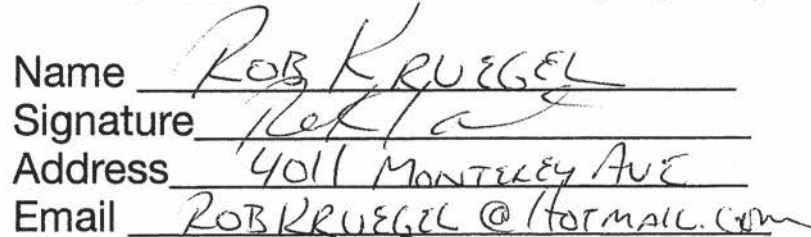 Name ROB KRUEGEL
Signature
Address 4011 MONTEREY AVE
Email ROBKRUEGEL@HOTMAIL.COM